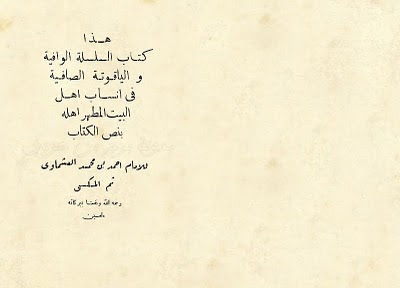 هـذا
كتـاب السلـسلة الوافية
و الياقوتـة الصافيـة
فى انسـاب اهـل
البيت المطهر اهله
بنص الكتاب
للامام احمد بن محمد العشماوى
ثم المكسى
رحمه الله ونفعنا ببركاته
آمين